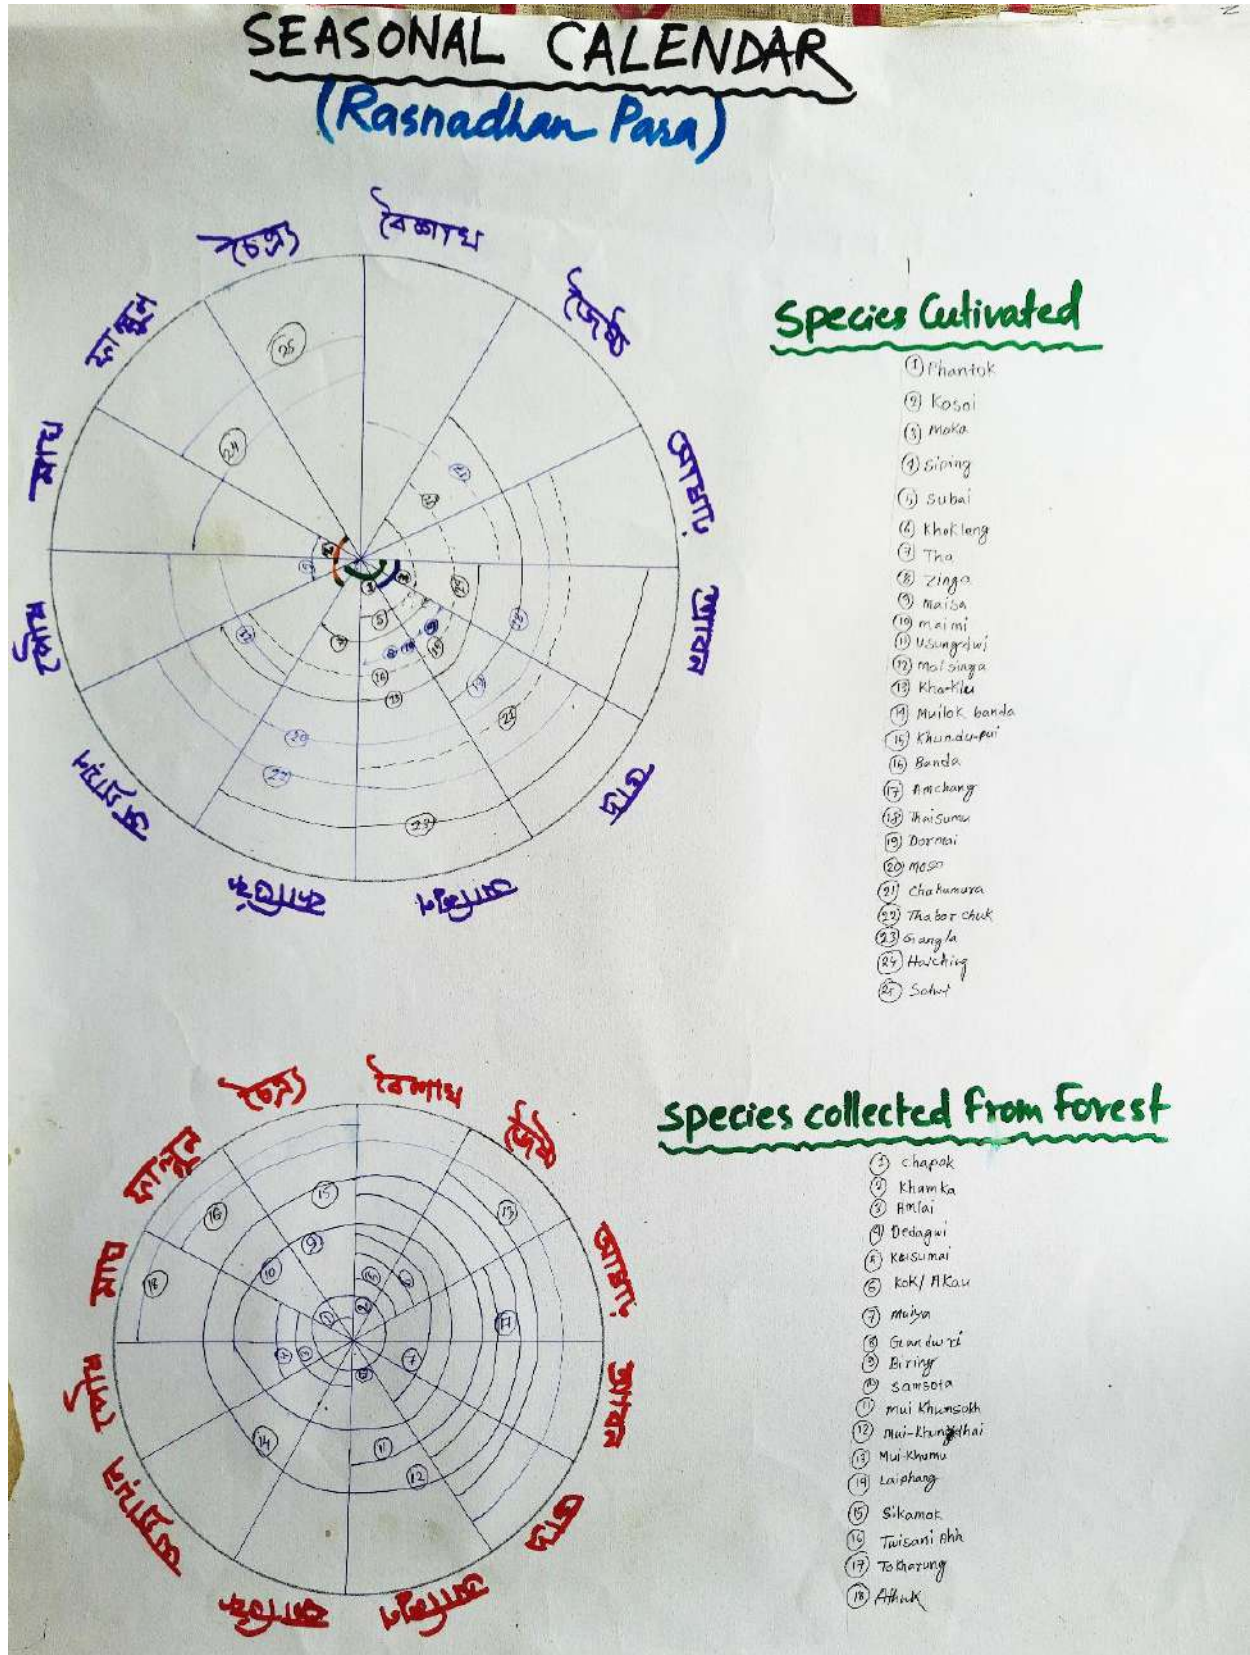 SEASONAL CALENDAR
(Rasnadhan Para)
চৈত্র
বৈশাখ
জ্যৈষ্ঠ
আষাঢ়
শ্রাবন
ভাদ্র
আশ্বিন
কার্তিক
ফাল্গুন
মাঘ
Species Cutivated
1 Phantok
2 Kosoi
3 Moka
4 Siping
5 Subai
6 Khokleng
7 Tha
8 Zinga
9 maisa
10 maimi
11 Usungdwi
12 Maisinga
13 Kha-Klu
14 Muilok banda
15 Khundu-pui
16 Banda
17 Amchang
18 Thaisumu
19 Dormai
20 moso
21 Chakumura
22 Thabor chuk
23 Gangla
24 Haiching
25
চৈত্র
বৈশাখ
জ্যৈষ্ঠ
আষাঢ়
শ্রাবন
ভাদ্র
আশ্বিন
কার্তিক
মাঘ
ফাল্গুন
Species collected From Forest
1 Chapok
2 Khamka
3 Amlai
4 Dedagwi
5 Kaisumai
6 KOK/ AKau
7 Muiya
8
9 Biring
10 Samsota
11 Mui Khunsokh
12
13 Mui-Khumu
14 Laiphang
15 Sikamok
16 Twisani Ahh
17 Tokharung
18 Athuk